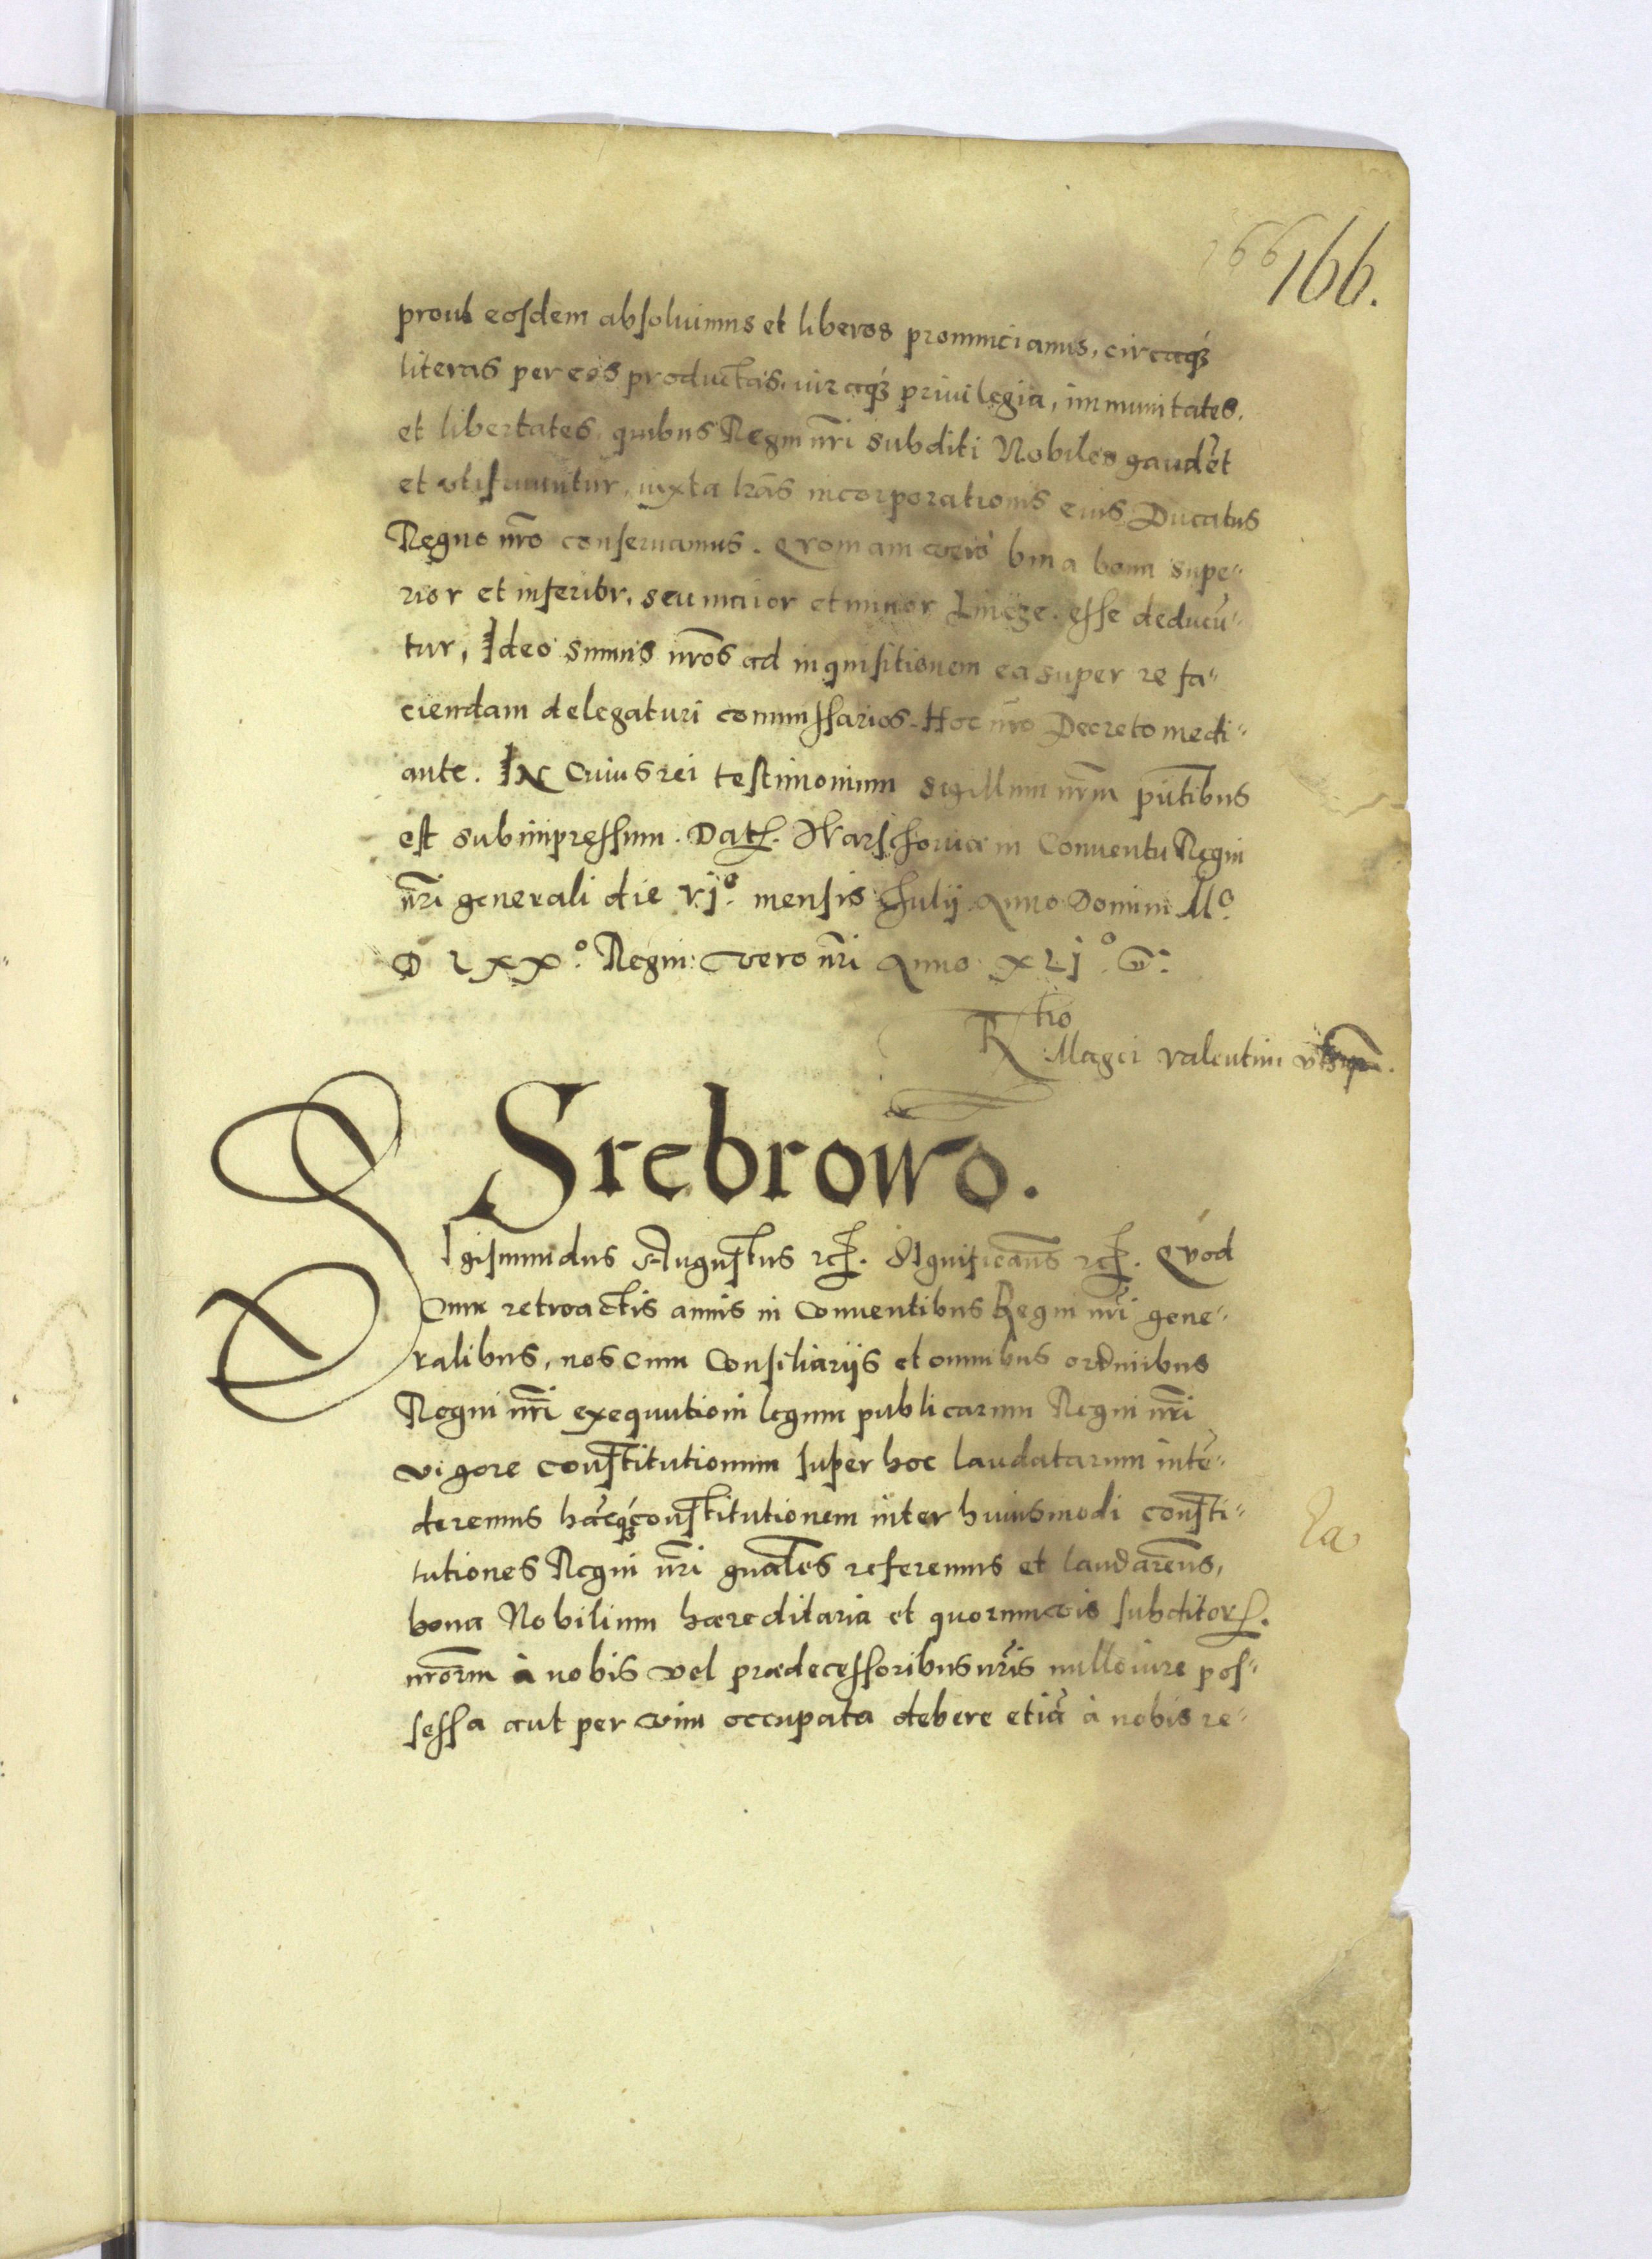 166.
prout eosdem absoluimus et liberos pronunciamus, circaq́3
literas per eos productas, iuraq́3 priuilegia, immunitates,
et libertates, quibus Regni nr̃i subditi Nobiles gaudẽt
et vtifruuntur, iuxta lr̃as incorporationis eius Ducatus
Regno nr̃o conseruamus. Qvoniam verò bina bona supe„
rior et inferior, seu maior et minor esse deducũ„
tur, Ideo sumus nr̃os ad inquisitionem ea super re fa„
ciendam delegaturi commissarios. Hoc nr̃o Decreto medi„
ante. IN Cuius rei testimonium sigillum nr̃m pñtibus
est subimpressum. Dat. Warschoviæ in Conuentu Regni
nr̃i generali die vjº. mensis Julij. Anno Domini Mº.
D LXXº. Regni: vero nr̃i Anno XLjº.
Rtio
Magci Valentini vt supra.
Srebrowo.
Sigismundus Augustus rc. Significamus rc. Qvód
Cum retroactis annis in Conuentibus Regni nr̃i gene„
ralibus, nos cum Consiliarijs et omnibus ordinibus
Regni nr̃i exequutioni legum publicarum Regni nr̃i
vigore constitutionum super hoc laudatarum intẽ„
deremus hãcq́3 constitutionem inter huiusmodi consti„
tutiones Regni nr̃i gnãles referemus et laudaremus,
bona Nobilium hæreditaria et quorumvis subditor.
nr̃orm à nobis vel prædecessoribus nr̃is nullo iure pos„
sessa aut per vim occupata debere etiã à nobis re„